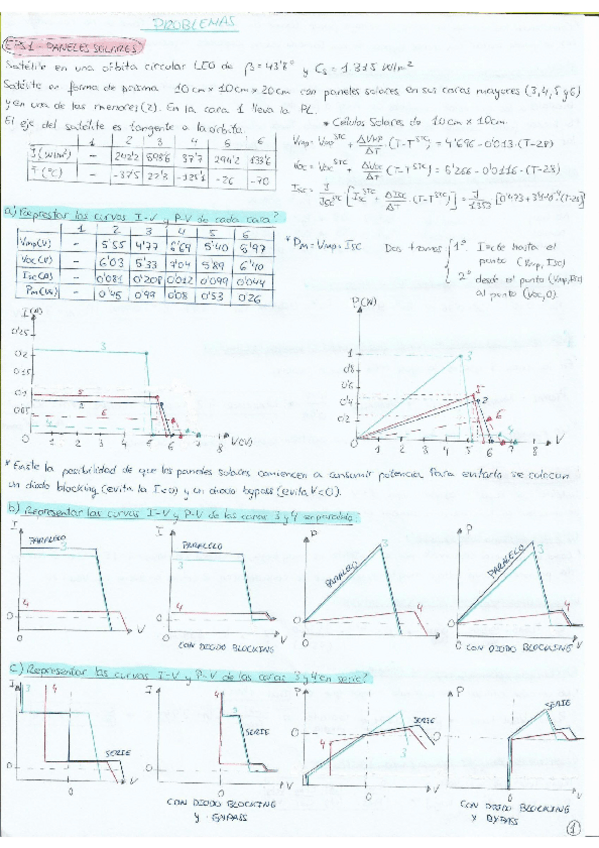 PROBLEMAS
EJ1 - PANELES SOLARES
Satélite en una órbita circular LEO de β=43'8° y Cs=1.315 W/m²
Satélite en forma de prisma 10cm x 10cm x 20cm con paneles solares en sus caras mayores (3,4,5 y 6)
y en una de las menores (2). En la cara 1 lleva la PL.
* Células Solares de 10cm x 10cm.
El eje del satélite es tangente a la órbita.
1 2 3 4 5 6
I (W/m²) - 242'2 37'7 294'2 133'6
T (°C) - -37'5 -26 -70
Vmp = Vmp^STC + ΔVmp/ΔT · (T-T^STC) = 4'696 - 0'013·(T-28)
Voc = Voc^STC + ΔVoc/ΔT (T-T^STC) = 5'266 - 0'0116·(T-28)
a) Representar las curvas I-V y P-V de cada cara?
1 2 3 4 5 6
Vmp(V) - 5'55 4'77 6'69 5'40 5'97
Voc(V) - 6'03 5'33 7'04 5'89 6'40
Isc(A) - 0'081 0'208 0'012 0'099 0'044
Pm(W) - 0'45 0'99 0'08 0'53 0'26
* Pm = Vmp · Isc
Dos tramos
1° I=cte hasta el
punto (Vmp, Isc)
2° desde el punto (Vmp, Isc)
al punto (Voc, 0).
I (A)
0'25
0'2
0'1
0'05
0 1 2 3 4 5 6 7 8 V(V)
3
5
2
6
P(W)
1
0'8
0'6
0'4
0'2
0 1 2 3 4 5 6 7 8 V
3
5
2
6
4
* Existe la posibilidad de que los paneles solares comiencen a consumir potencia. Para evitarlo se colocan
un diodo blocking (evita la I<0) y un diodo bypass (evita V<0).
b) Representar las curvas I-V y P-V de las caras 3 y 4 en paralelo.
I
PARALELO
3
4
0
V
I
PARALELO
3
4
0
V
CON DIODO BLOCKING
P
PARALELO
3
4
0
V
P
PARALELO
3
4
0
V
CON DIODO BLOCKING
c) Representar las curvas I-V y P-V de las caras 3 y 4 en serie?
I
3
4
SERIE
0
0
V
I
4
3
SERIE
0
0
V
CON DIODO BLOCKING
Y BYPASS
P
4
3
SERIE
0
0
V
P
SERIE
0
0
V
CON DIODO BLOCKING
Y BYPASS
1